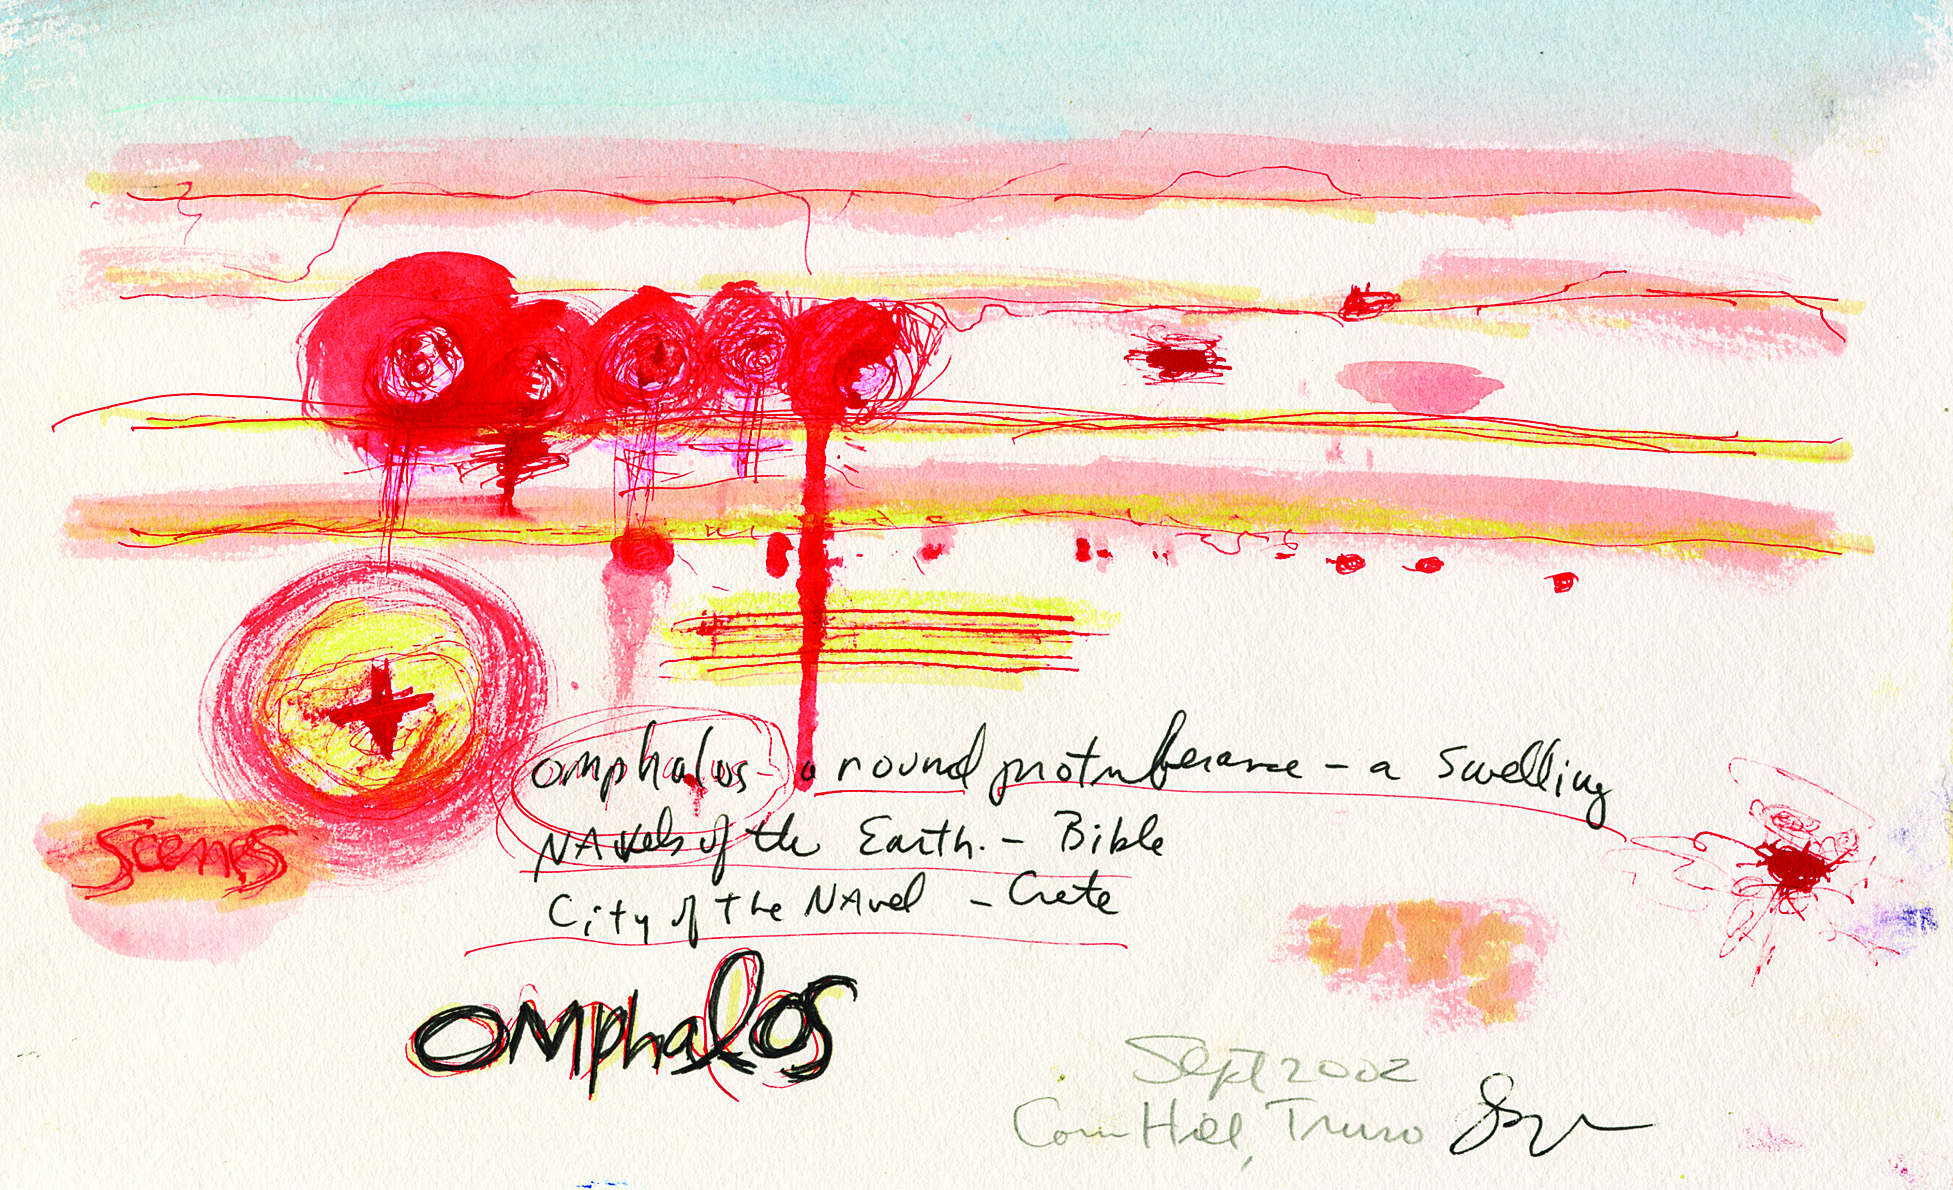 omphalos - a round protuberance - a swelling
Scenes
NAvels of the Earth. - Bible
City of the NAvel - Crete
omphalos
Sept 2002
Corn Hill, Truro